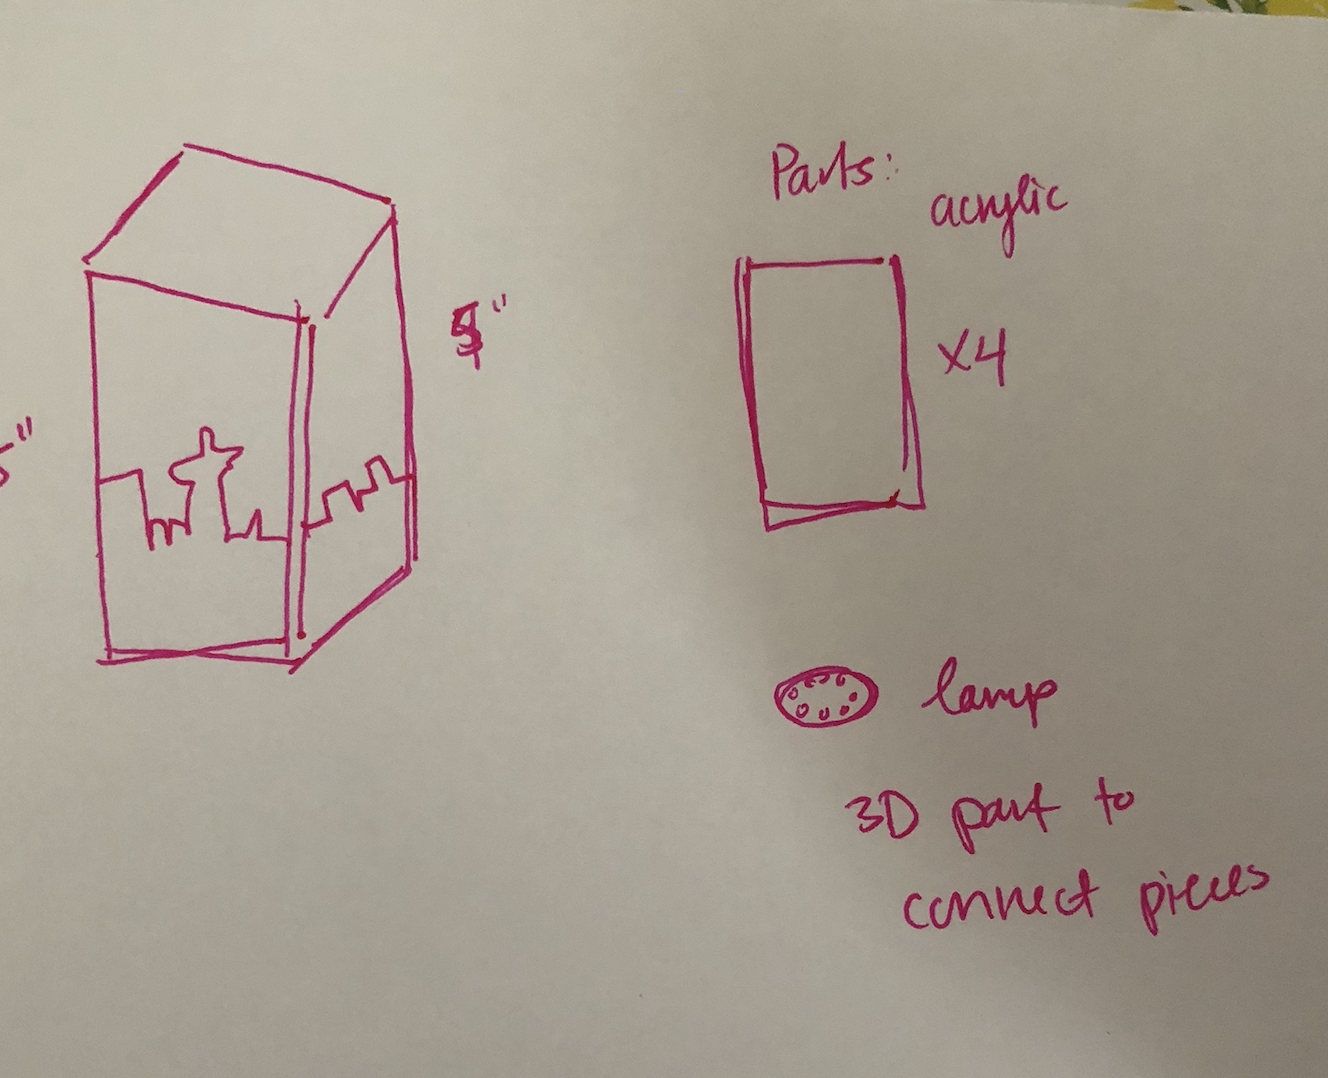 Parts:
acrylic
X4
5"
lamp
3D part to
connect pieces